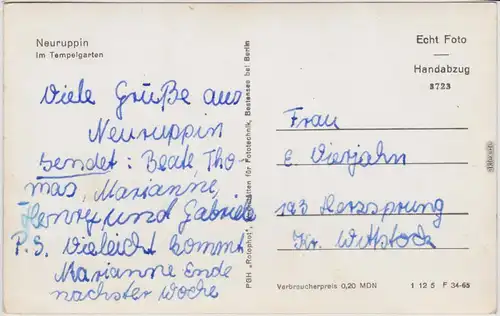 Neuruppin
Im Tempelgarten
Viele Grüße aus
Neuruppin
sendet: Beate Tho-
mas, Marianne,
Henry, und Gabriele
P.S. Vieleicht kommt
Marianne Ende
nächster Woche
PGH „Rotophot", Werkstätten für Fototechnik, Bestensee bei Berlin
Echt Foto
Handabzug
3723
Frau
E. Vierjahn
193 Herzsprung
Kr. Wittstock
Verbraucherpreis 0,20 MDN
1 12 5 F 34-65